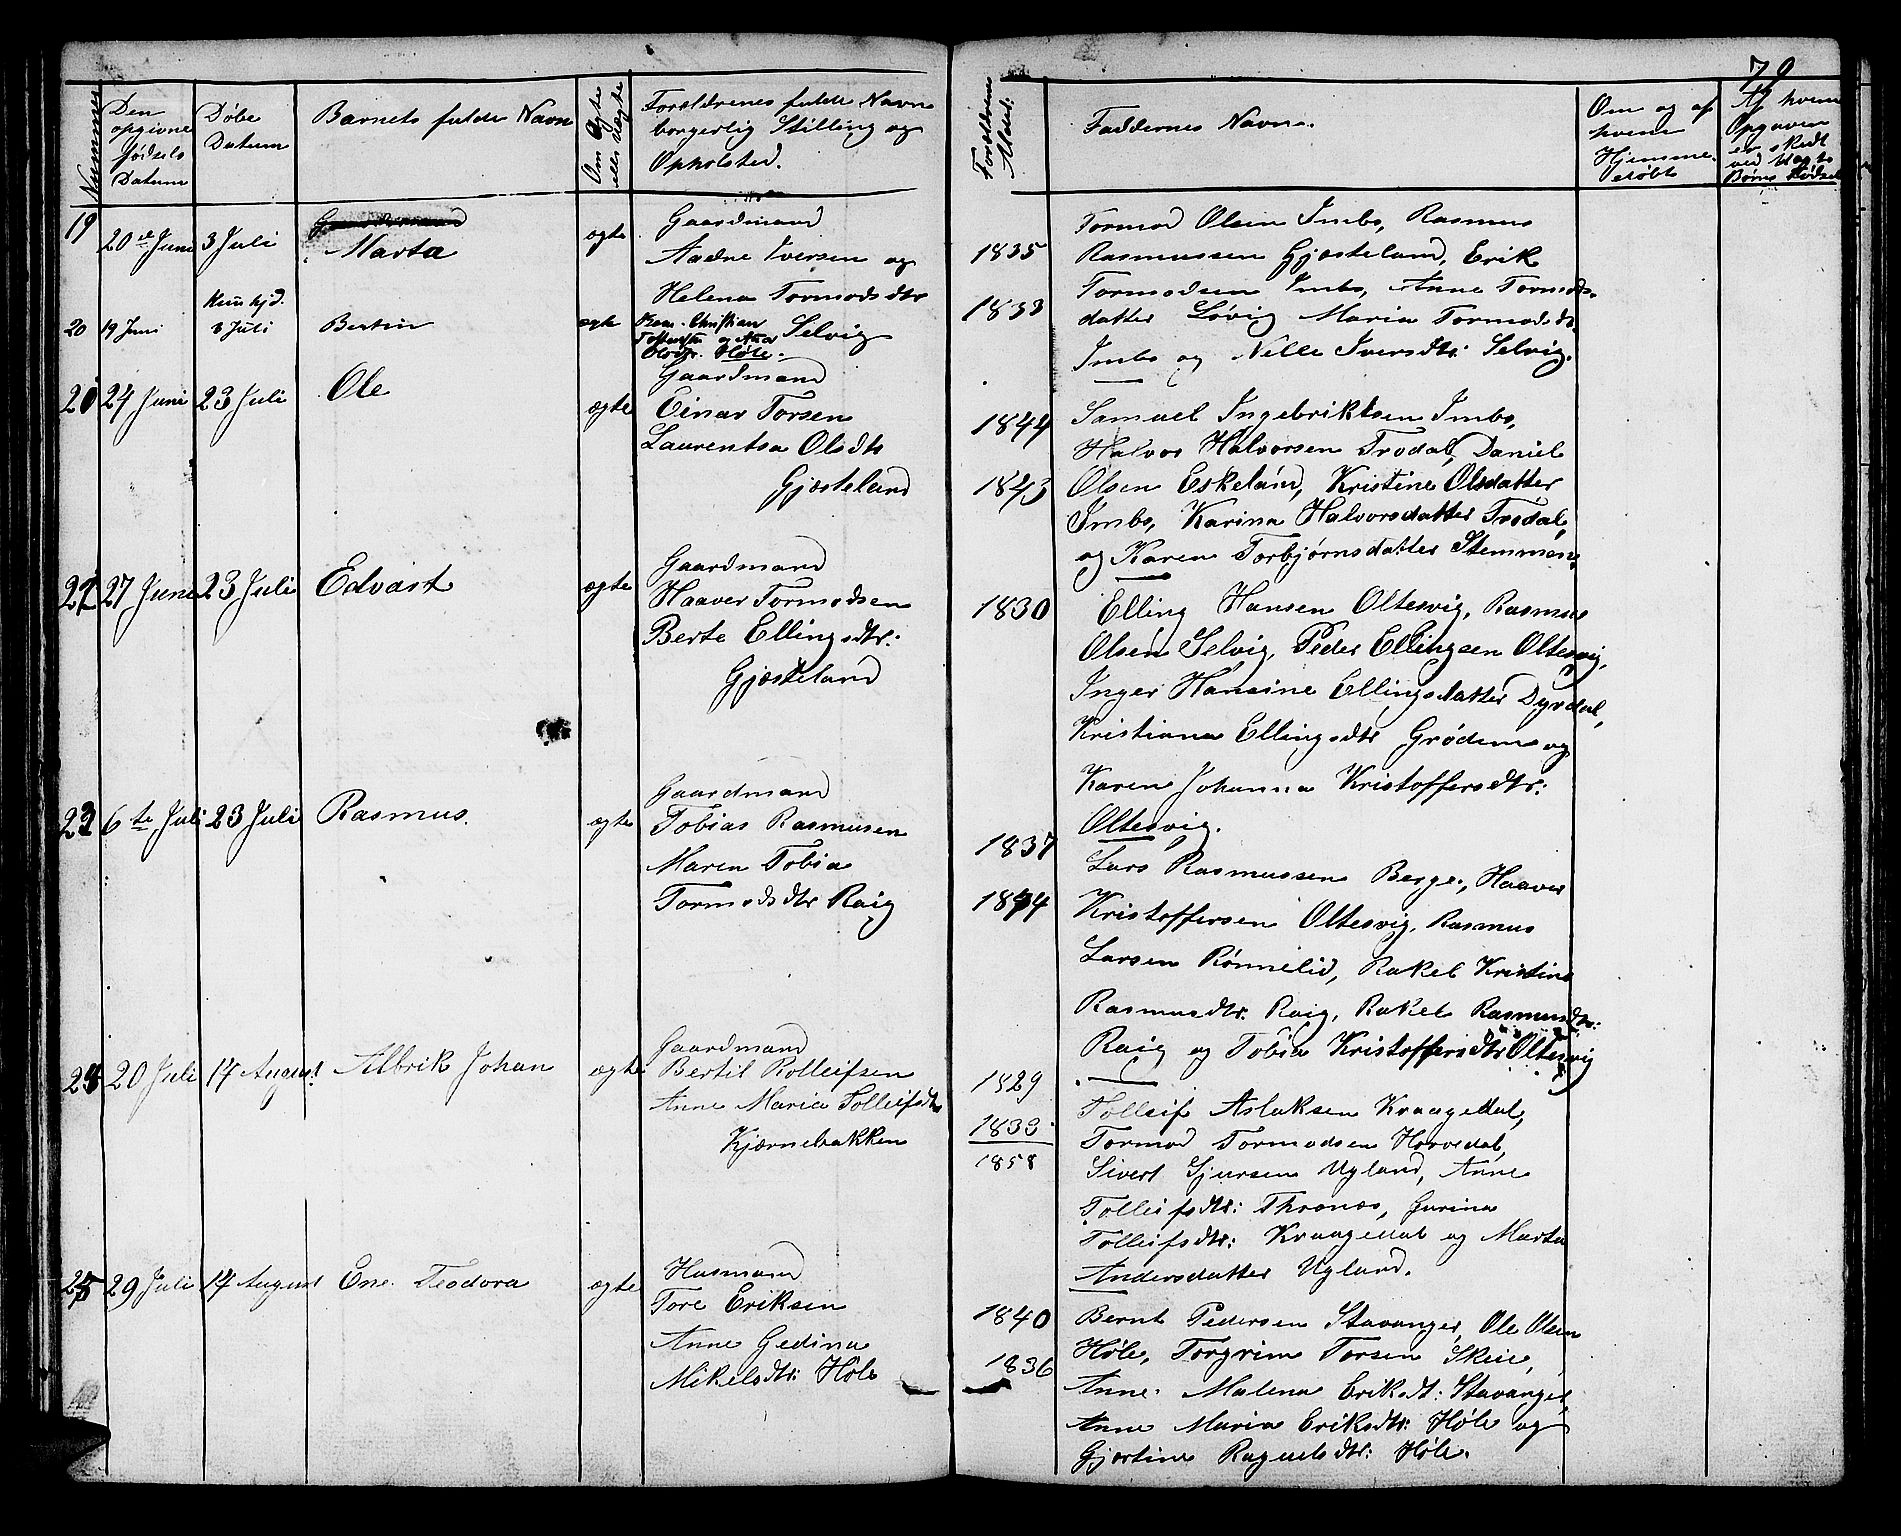 79
Nummer
Den opgivne Fødsels Datum
Døbe Datum
Barnets fulde Navn
Om Ægte eller Uægte
Forældrenes fulde Navn
borgerlig Stilling og
Opholsted.
Forældrenes Alder.
Faddernes Navne.
Om og af hvem Hjemmedøbt
Af hvem Opgaven er skedt ved Uægte Børns Fødsel
19
20de Juni
3 Juli
Marta
ægte
Gaardmand
Aadne Iversen og
Helena Tormodsdtr
Selvig
1835
1833
Tormod Olsen Imbs, Rasmus
Rasmussen Gjæsteland, Erik
Tormodsen Imbs, Anne Tormods-
datter Løvig Maria Tormodsdtr
Imbs og Nelle Iversdtr. Selvig.
20
19 Juni
hjd.
3 Juli
Bertin
ægte
Christian
Høle.
24 Juni
23 Juli
Ole
ægte
Gaardmand
Einar Torsen
Laurentsa Olsdtr
Gjæsteland
1844
1843
Samuel Ingebriktsen Imbs,
Halvor Halvorsen Trodal, Daniel
Olsen Eskeland, Kristine Olsdatter
Imbs, Karina Halvorsdatter Trodal,
og Karen Torbjørnsdatter Stemmene
22
27 Juni
23 Juli
Edvart
ægte
Gaardmand
Haaver Tormodsen
Berte Ellingsdtr:
Gjæsteland
1830
Elling Hansen Oltesvig, Rasmus
Olsen Selvig, Peder Ellingsen Oltesvig,
Inger Hansine Ellingsdatter Dyrdal,
Kristiana Ellingsdtr Grødem og
Karen Johanna Kristoffersdtr:
Oltesvig.
23
6te Juli
23 Juli
Rasmus.
ægte
Gaardmand
Tobias Rasmusen
Maren Tobia
Tormodsdtr Raig
1837
1844
Lars Rasmussen Berge, Haaver
Kristoffersen Oltesvig, Rasmus
Larsen Rønnelid, Rakel Kristine
Rasmusdtr: Raig, Rakel Rasmusdtr:
Raig og Tobia Kristoffersdtr Oltesvig
24
20 Juli
14 August
Albrik Johan
ægte
Gaardmand
Bertil Rolleifsen
Anne Maria Tolleifsdtr
Kjærnebakken
1829
1833
1858
Tolleif Aslaksen Kraagedal,
Tormod Tormodsen Hovedal,
Sivert Sjursen Ugland, Anne
Tolleifsdtr: Thronæs, Jurina
Tolleifsdtr: Kraagedal og Marta
Andersdatter Ugland.
25
29 Juli
14 August
Ene Teodora
ægte
Husmand
Tore Eriksen
Anne Gedina
Mikelsdtr: Høle
1840
1836
Bernt Pedersen Stavanger, Ole Olsen
Høle, Torgrim Torsen Skeie,
Anne Malena Eriksdt: Stavanger,
Anne Maria Eriksdtr: Høle og
Gjertine Raguelsdtr: Høle.